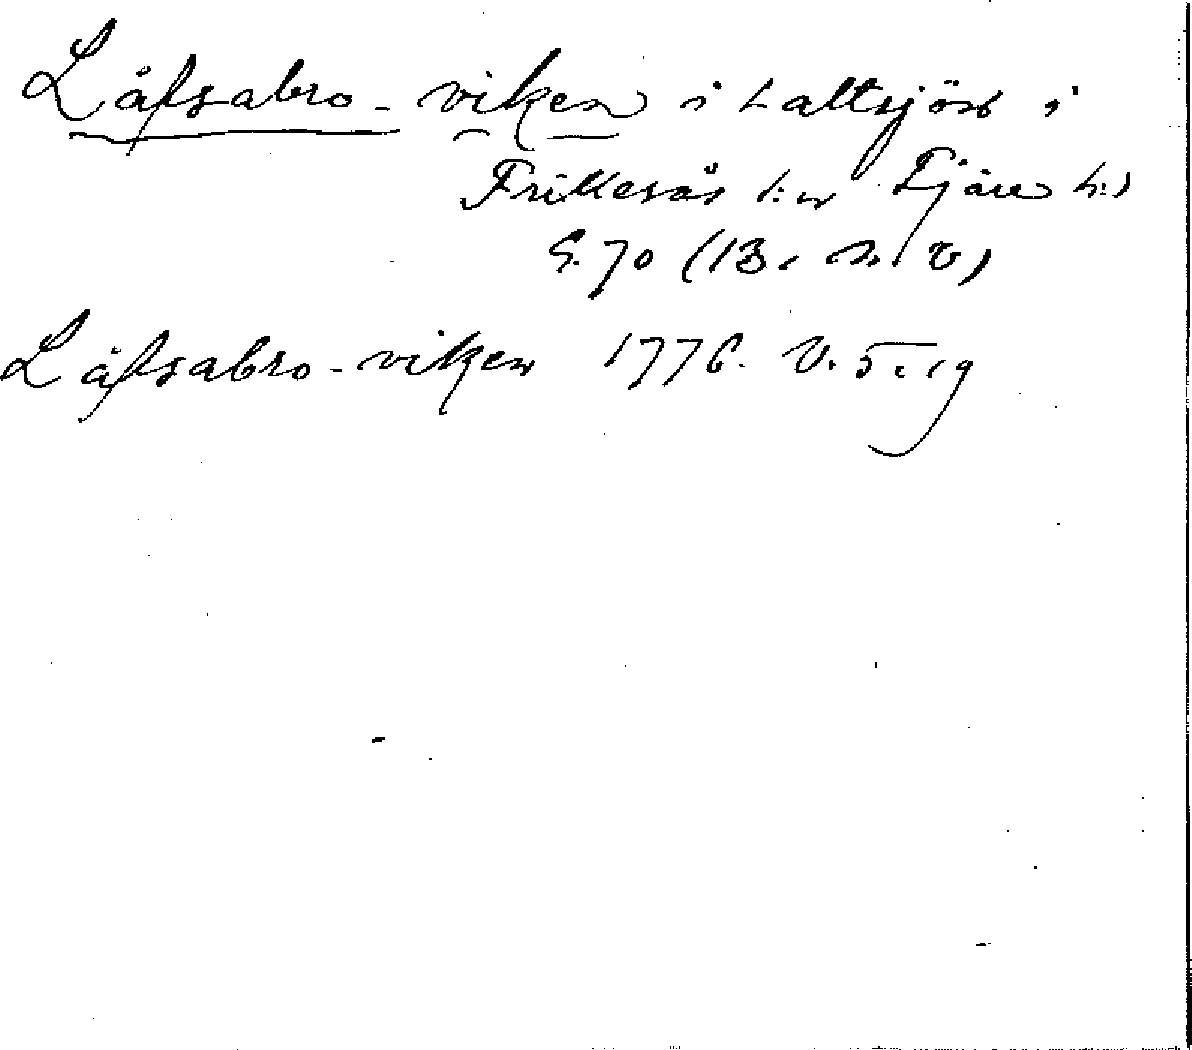 Låfsabro-viken i Saltsjön i
Frillesås s:n Fjäre h:d
G. 70 (B. n. V)
Låfsabro-viken 1776. V. 5. 19